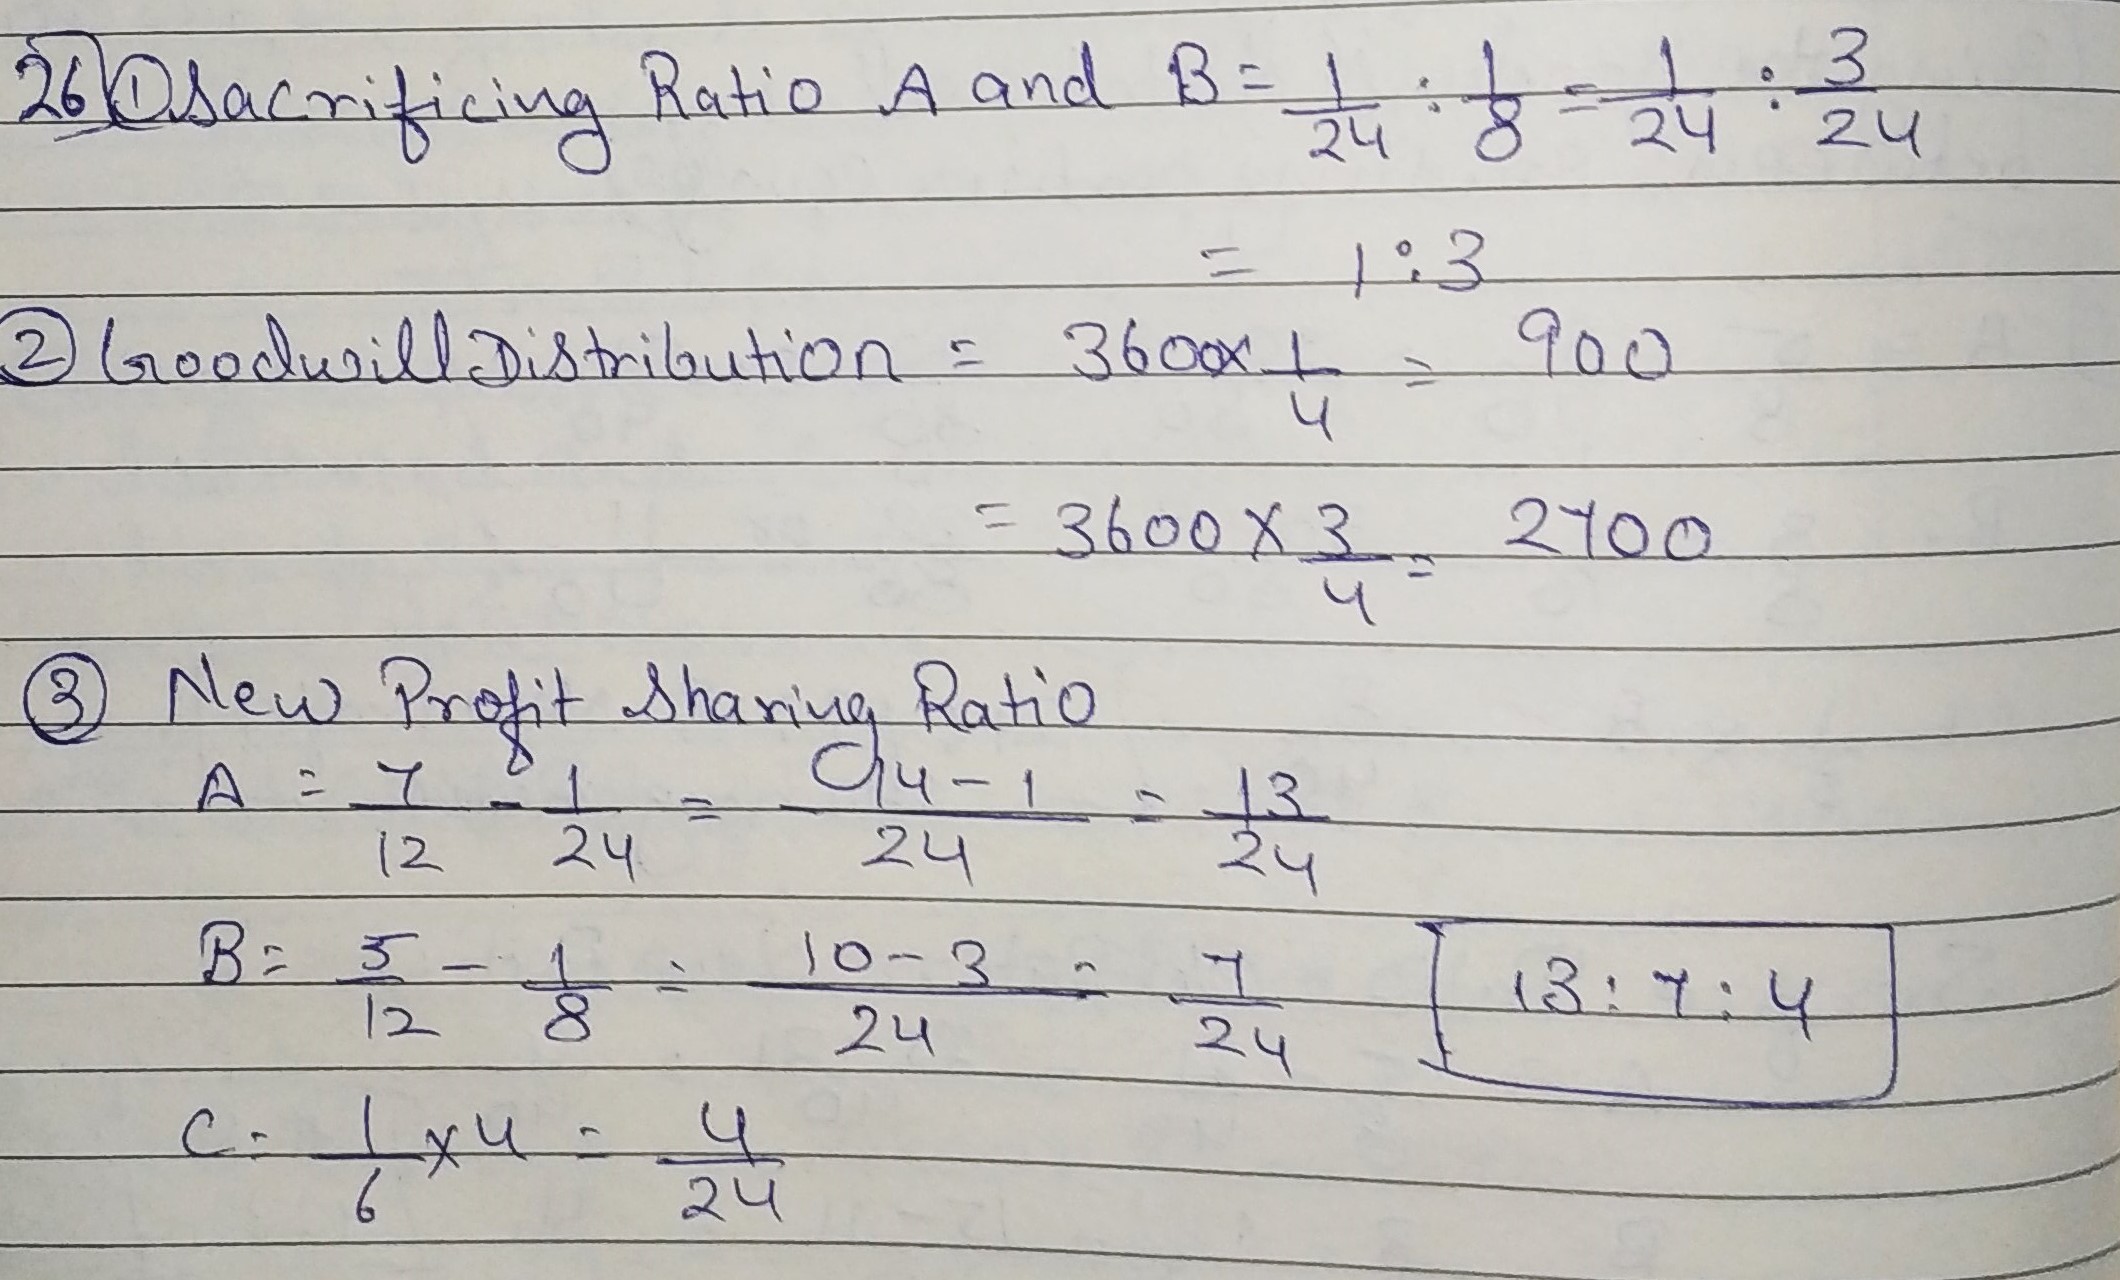 26 ① Sacrificing Ratio A and B = 1/24 : 1/8 = 1/24 : 3/24
= 1:3
② Goodwill Distribution = 3600 x 1/4 = 900
= 3600 x 3/4 = 2700
③ New Profit Sharing Ratio
A = 7/12 - 1/24 = 14-1/24 = 13/24
B = 5/12 - 1/8 = 10-3/24 = 7/24 13:7:4
C = 1/6 x 4 = 4/24